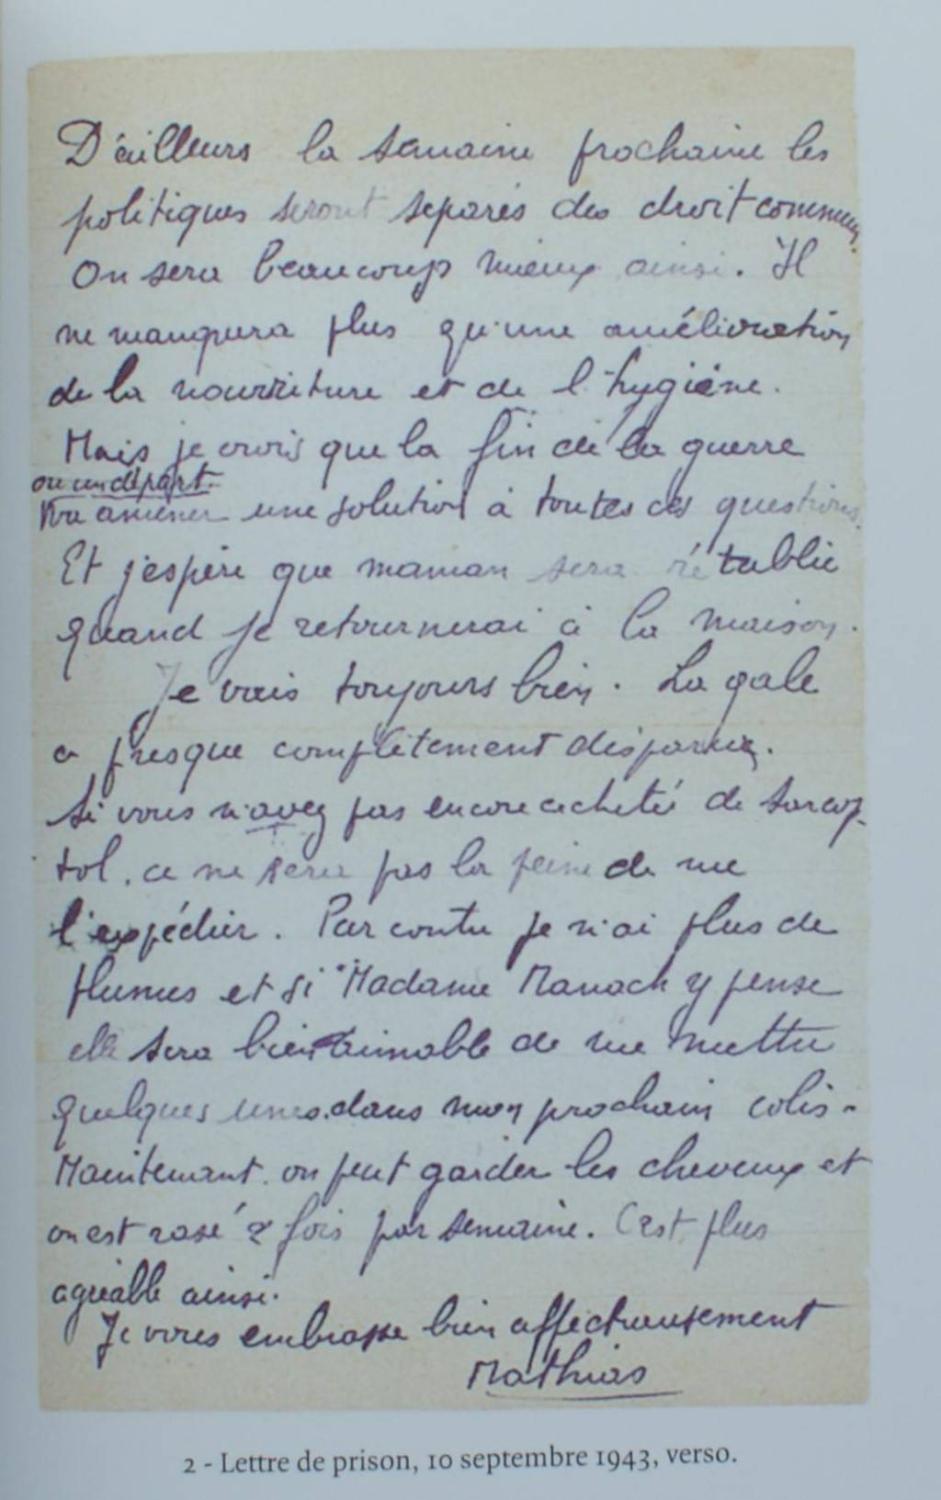 D'ailleurs la semaine prochaine les
politiques seront séparés des droit commun.
On sera beaucoup mieux ainsi. Il
ne manquera plus qu'une amélioration
de la nourriture et de l'hygiène.
Mais je crois que la fin de la guerre
ou un départ
va amener une solution à toutes ces questions.
Et j'espère que maman sera rétablie
quand je retournerai à la maison.
Je vais toujours bien. La gale
a presque complètement disparue.
Si vous n'avez pas encore acheté de Sarcop-
tol, ce ne sera pas la peine de me
l'expédier. Par contre je n'ai plus de
plumes et si Madame Manach y pense
elle sera bien aimable de me mettre
quelques unes dans mon prochain colis.
Maintenant on peut garder les cheveux et
on est rasé 2 fois par semaine. C'est plus
agréable ainsi.
Je vous embrasse bien affectueusement
Mathias
2 - Lettre de prison, 10 septembre 1943, verso.